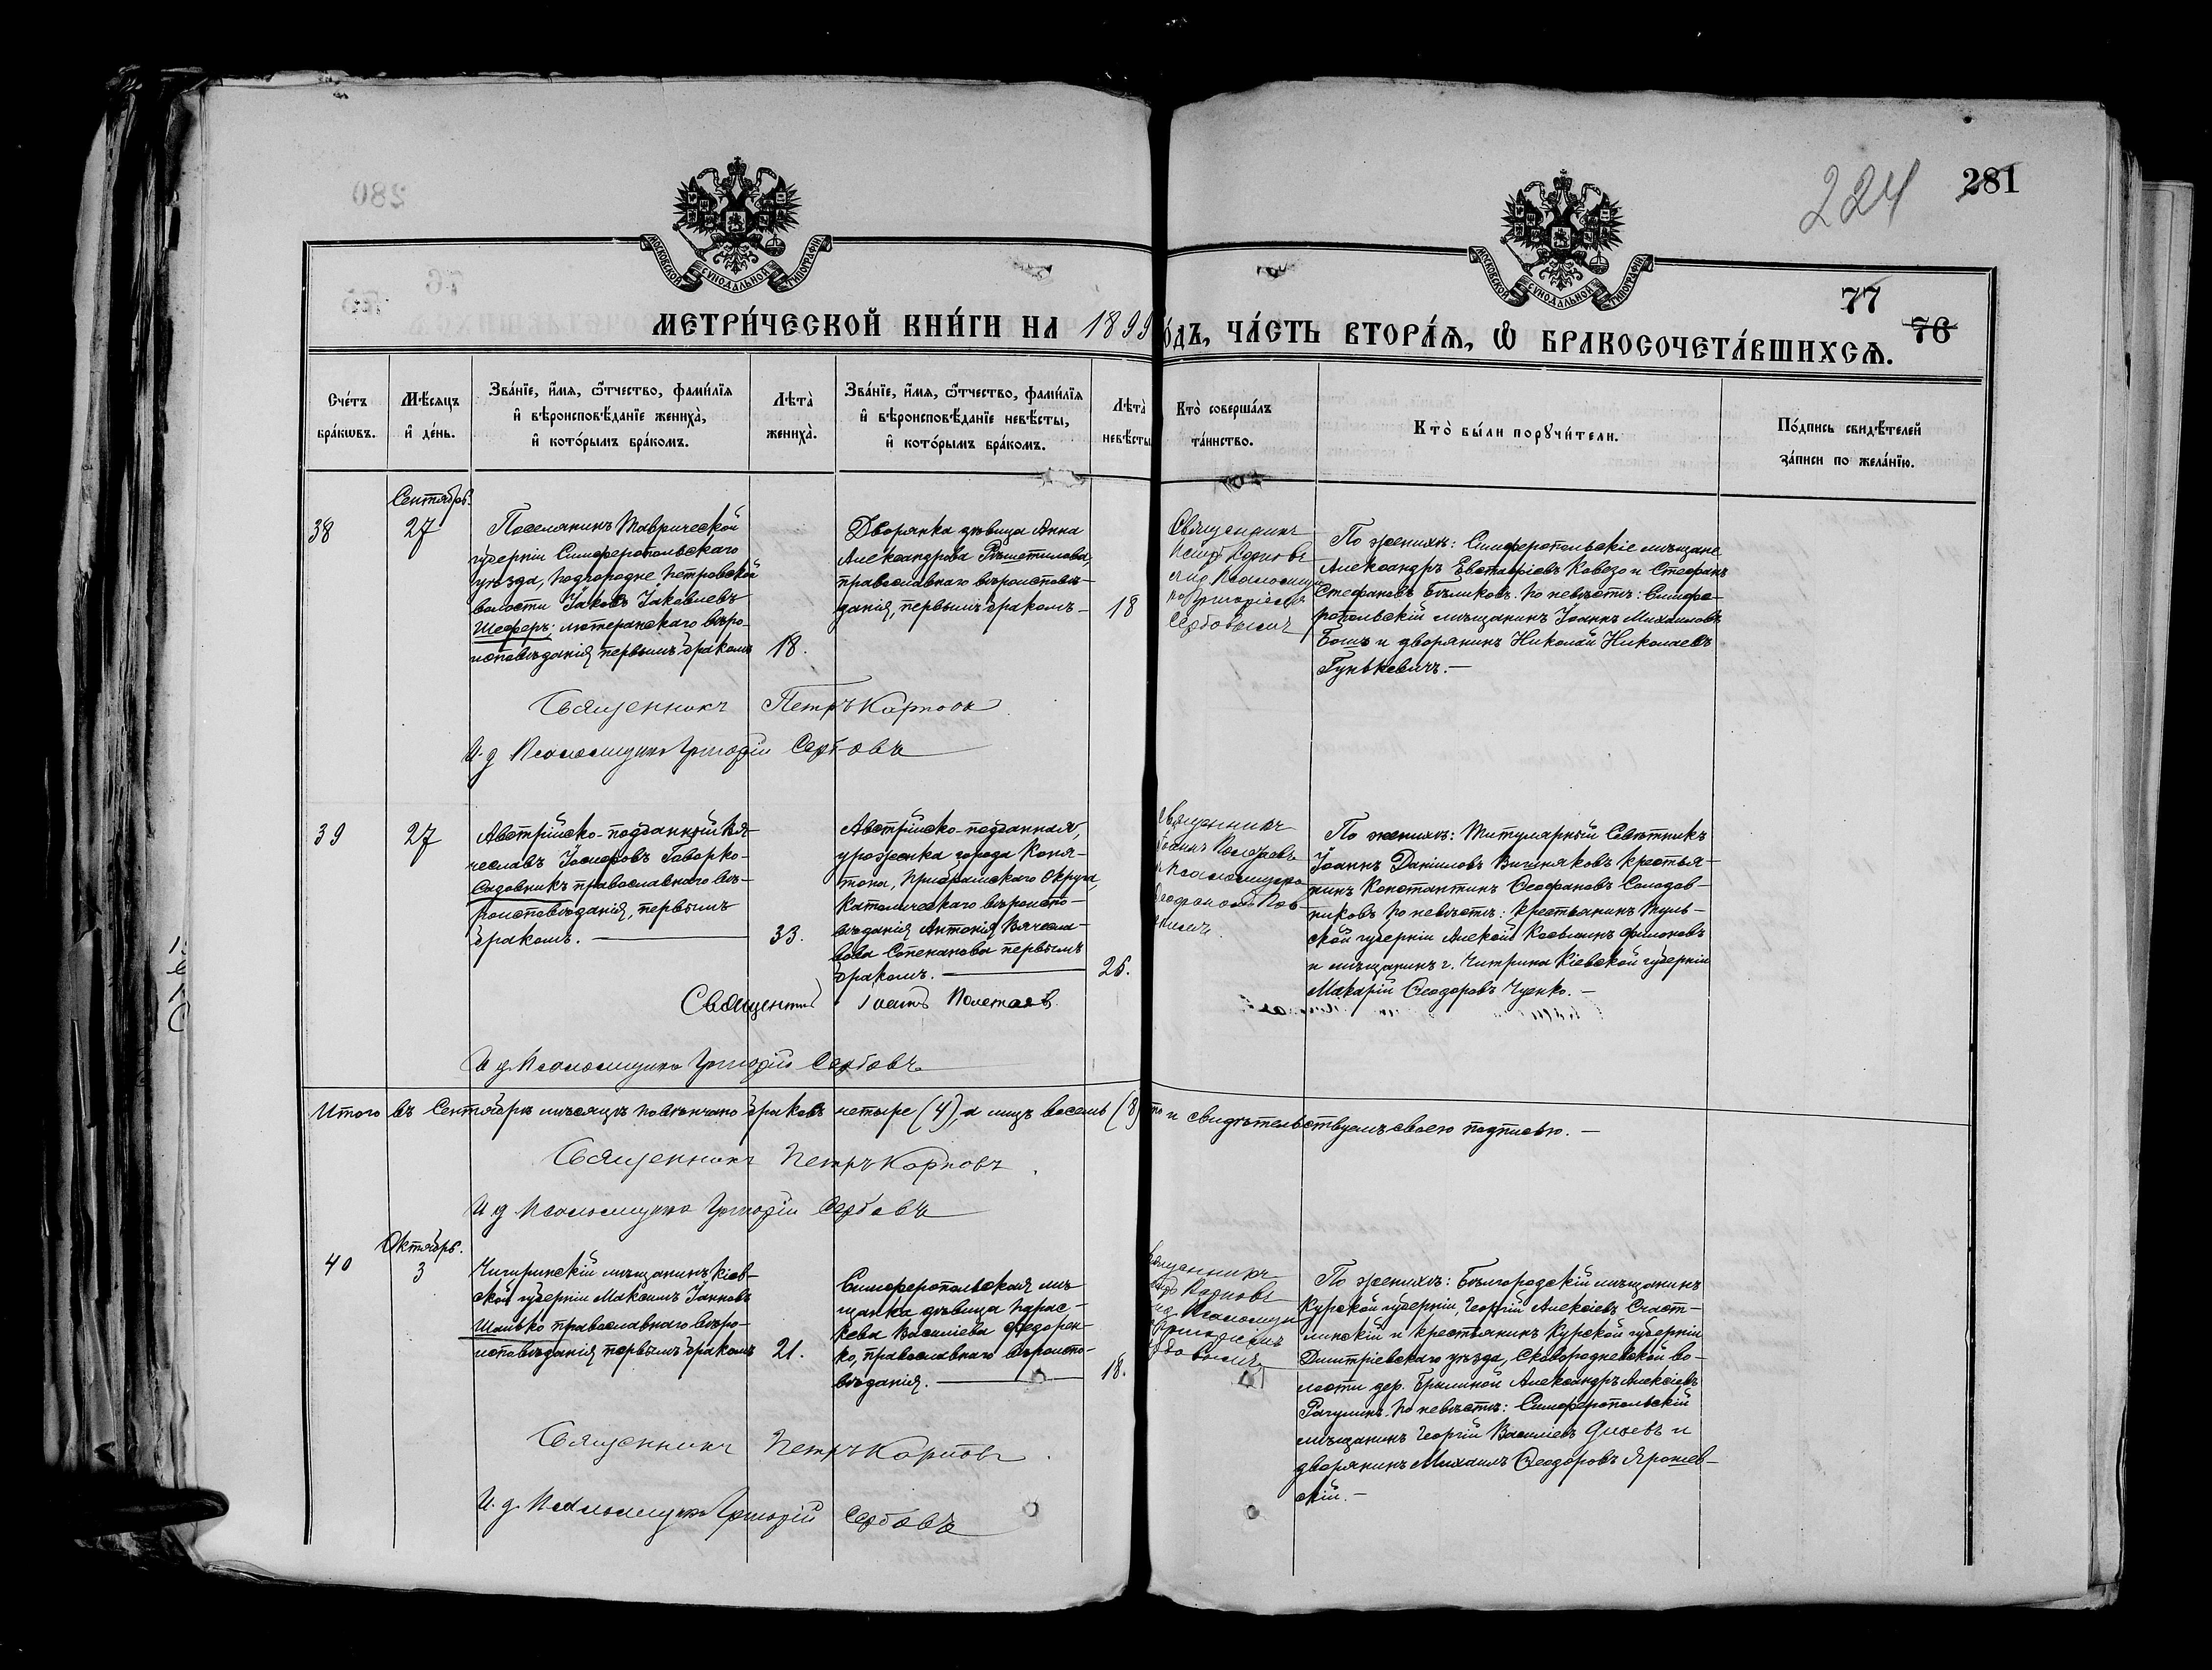 224
281
МОСКОВСКОЙ СѴНОДАЛЬНОЙ ТИПОГРАФІИ
МОСКОВСКОЙ СѴНОДАЛЬНОЙ ТИПОГРАФІИ
77
76
МЕТРИ́ЧЕСКОЙ КНИ́ГИ НА 1899
о́дъ, ЧА́СТЬ ВТОРА́Ѧ, Ѡ҆ БРАКОСОЧЕТА́ВШИХСѦ.
Сче́тъ
бра́кωвъ.
Мѣ́сяцъ
и҆ де́нь.
Зва́нїе, и҆́мѧ, ѻ҆́тчество, фами́лїѧ
и҆ вѣроисповѣ́данїе жениха̀,
и҆ кото́рымъ бра́комъ.
Лѣта̀
жениха̀.
Зва́нїе, и҆́мѧ, ѻ҆́тчество, фами́лїѧ
и҆ вѣроисповѣ́данїе невѣ́сты,
и҆ кото́рымъ бра́комъ.
Лѣта̀
невѣ́сты
Кто̀ соверша́лъ
та́инство.
Кто̀ бы́ли порꙋчи́тели.
По́дпись свидѣ́телей
за́писи по жела́нїю.
Сентябрь.
38
27
Поселянинъ Таврической
губерніи Симферопольскаго
уѣзда, Подгородне Петровской
волости Іаковъ Іаковлевъ
Шеферъ; лютеранскаго вѣро-
исповѣданія первымъ бракомъ
18.
Дворянка дѣвица Анна
Александрова Рѣшетилова,
православнаго вѣроисповѣ-
данія, первымъ бракомъ -
18
Священникъ
Петръ Карповъ
По женихѣ: Симферопольскіе мѣщане
Александръ Евстафіевъ Кавезо и Стефанъ
Стефановъ Бѣликовъ. По невѣстѣ: Симфе-
ропольскій мѣщанинъ Іоаннъ Михаиловъ
Бошъ и дворянинъ Николай Николаевъ
Гунькевичъ. —
Священникъ Петръ Карповъ
И. д. Псаломщика Григорій Сербовъ
39
27
Австрійско-подданный Вя-
чеславъ Іосифовъ Гаворко-
Садовникъ православнаго вѣ-
роисповѣданія, первымъ
бракомъ. —
33.
Австрійско-подданная,
уроженка города
Округа,
Католическаго вѣроиспо-
вѣданія Антонія Вячесла-
вова Степанова первымъ
бракомъ. —
26.
По женихѣ: Титулярный Совѣтникъ
Іоаннъ Даніиловъ Вишняковъ крестья-
нинъ Константинъ Ѳеофановъ Солодов-
никовъ По невѣстѣ: крестьянинъ Туль-
ской губерніи Алексій Косьминъ Филоновъ
и мѣщанинъ г. Чигрина Кіевской губерніи
Макарій Ѳеодоровъ Чуенко. —
Священникъ Іоаннъ Полетаев.
И д. Псаломщика Григорій Сербовъ
Итого въ Сентябрѣ мѣсяцѣ повѣнчано браковъ четыре (4), а лицъ восемь (8)
и свидѣтельствуемъ своею подписью. —
Священникъ Петръ Карповъ
И д Псаломщика Григорій Сербовъ
Октябрь.
40
3
Чигиринскій мѣщанинъ Кіев-
ской губерніи Максимъ Іанновъ
Шанько православнаго вѣро-
исповѣданія первымъ бракомъ
21.
Симферопольская мѣ-
щанка дѣвица Парас-
кева Василіева Федорен-
ко, православнаго вѣроиспо-
вѣданія. —
18.
По женихѣ: Бѣлгородскій мѣщанинъ
Курской губерніи, Георгій Алексіевъ Счаст-
ливскій и крестьянинъ Курской губерніи
Дмитріевскаго уѣзда, Сковородневской во-
лости дер. Александръ Алексіевъ
Рагулинъ. По невѣстѣ: Симферопольскій
мѣщанинъ Георгій Василіевъ и
дворянинъ Михаилъ Ѳеодоровъ Ярошев-
скій. —
Священникъ Петръ Карповъ
И. д. Псаломщика Григорій Сербовъ